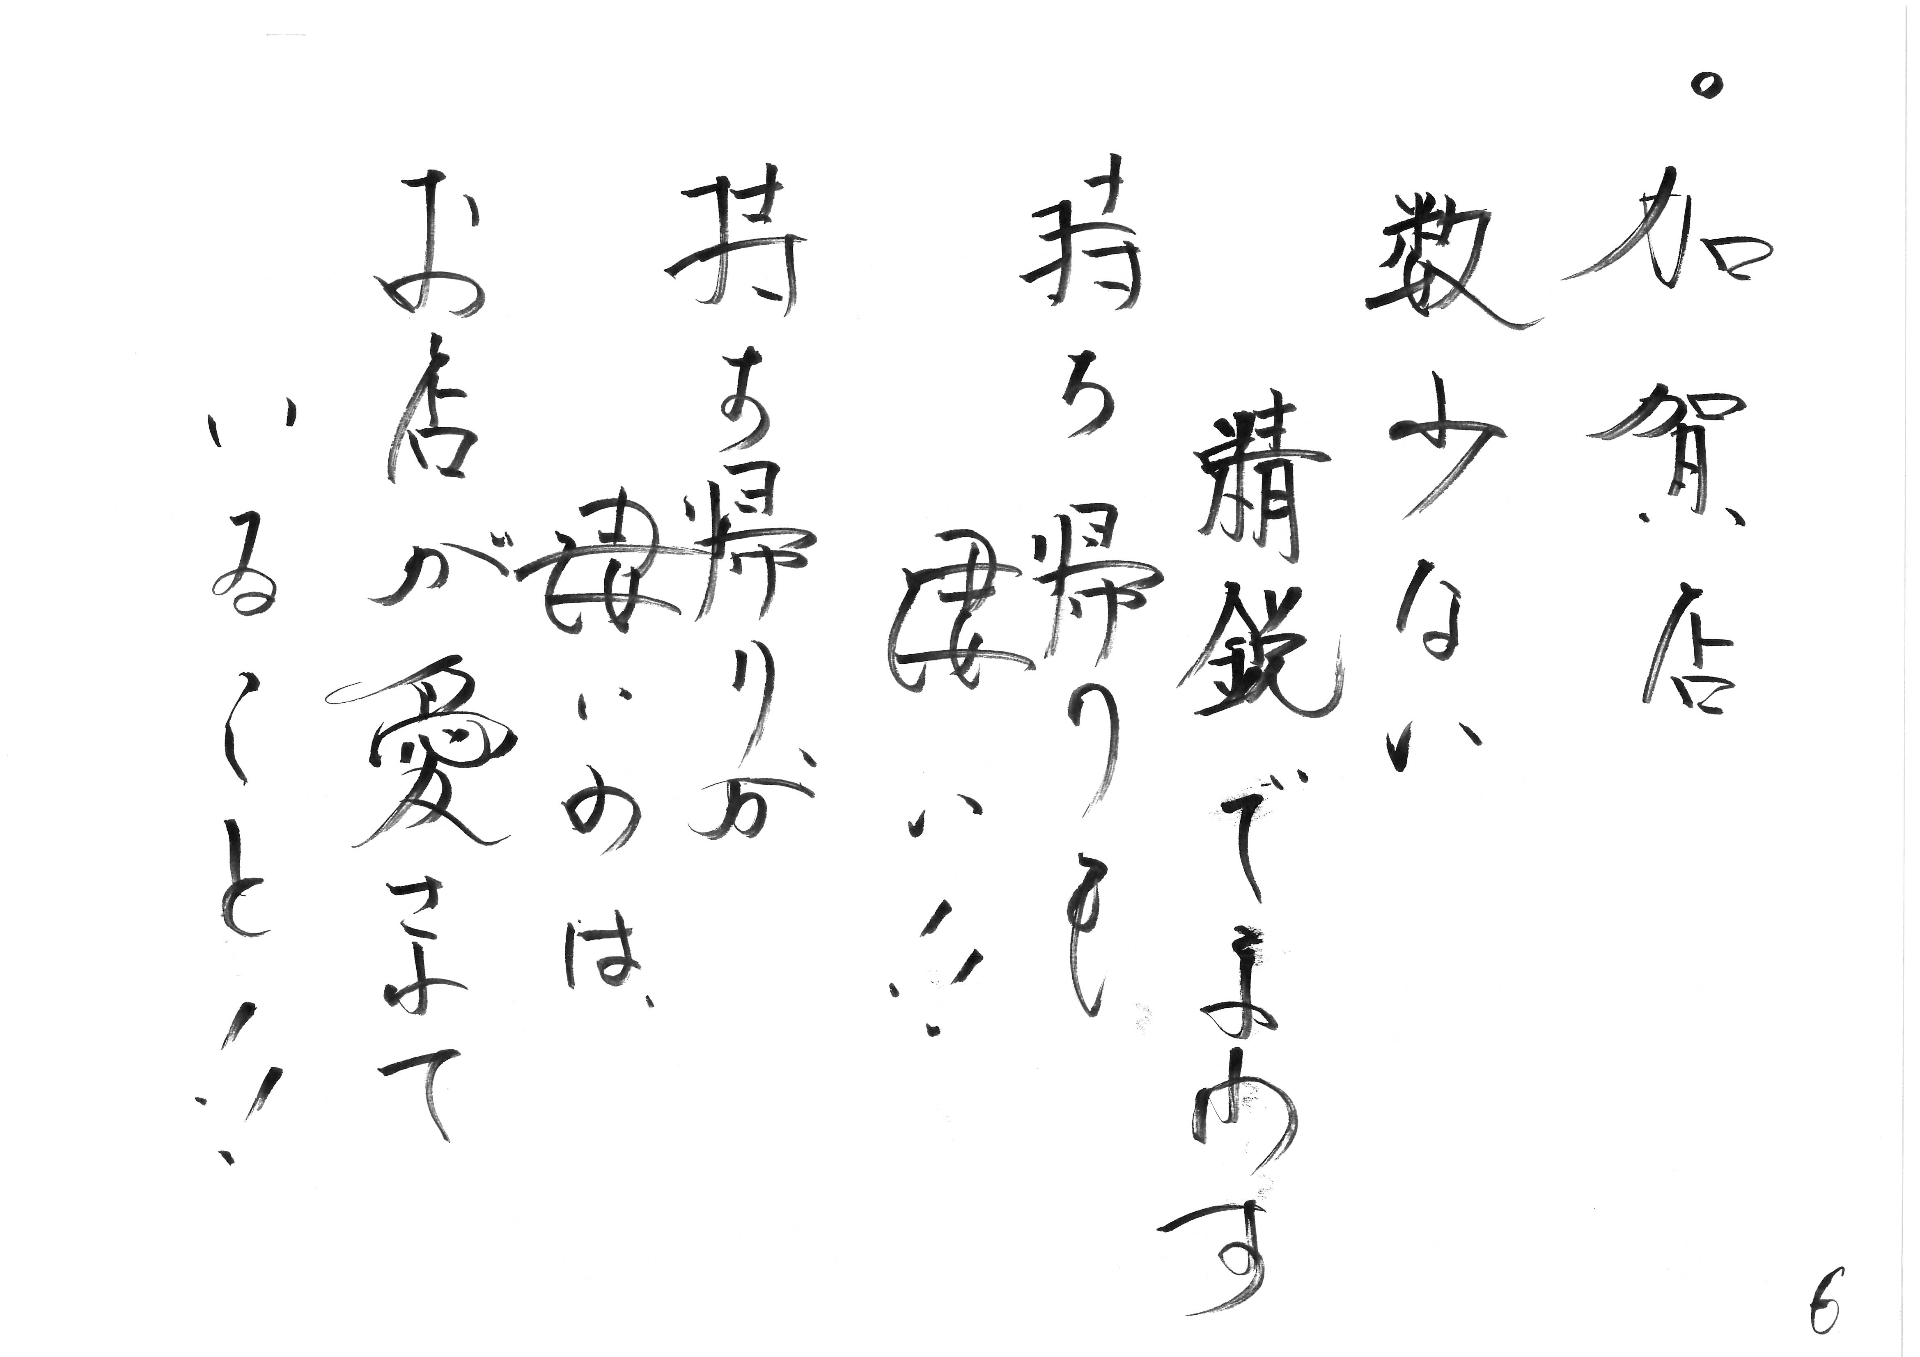 。加賀店
数少ない
精鋭でまわす
持ち帰りも
凄い!!
持ち帰りが
凄いのは、
お店が愛されて
いること!!
6